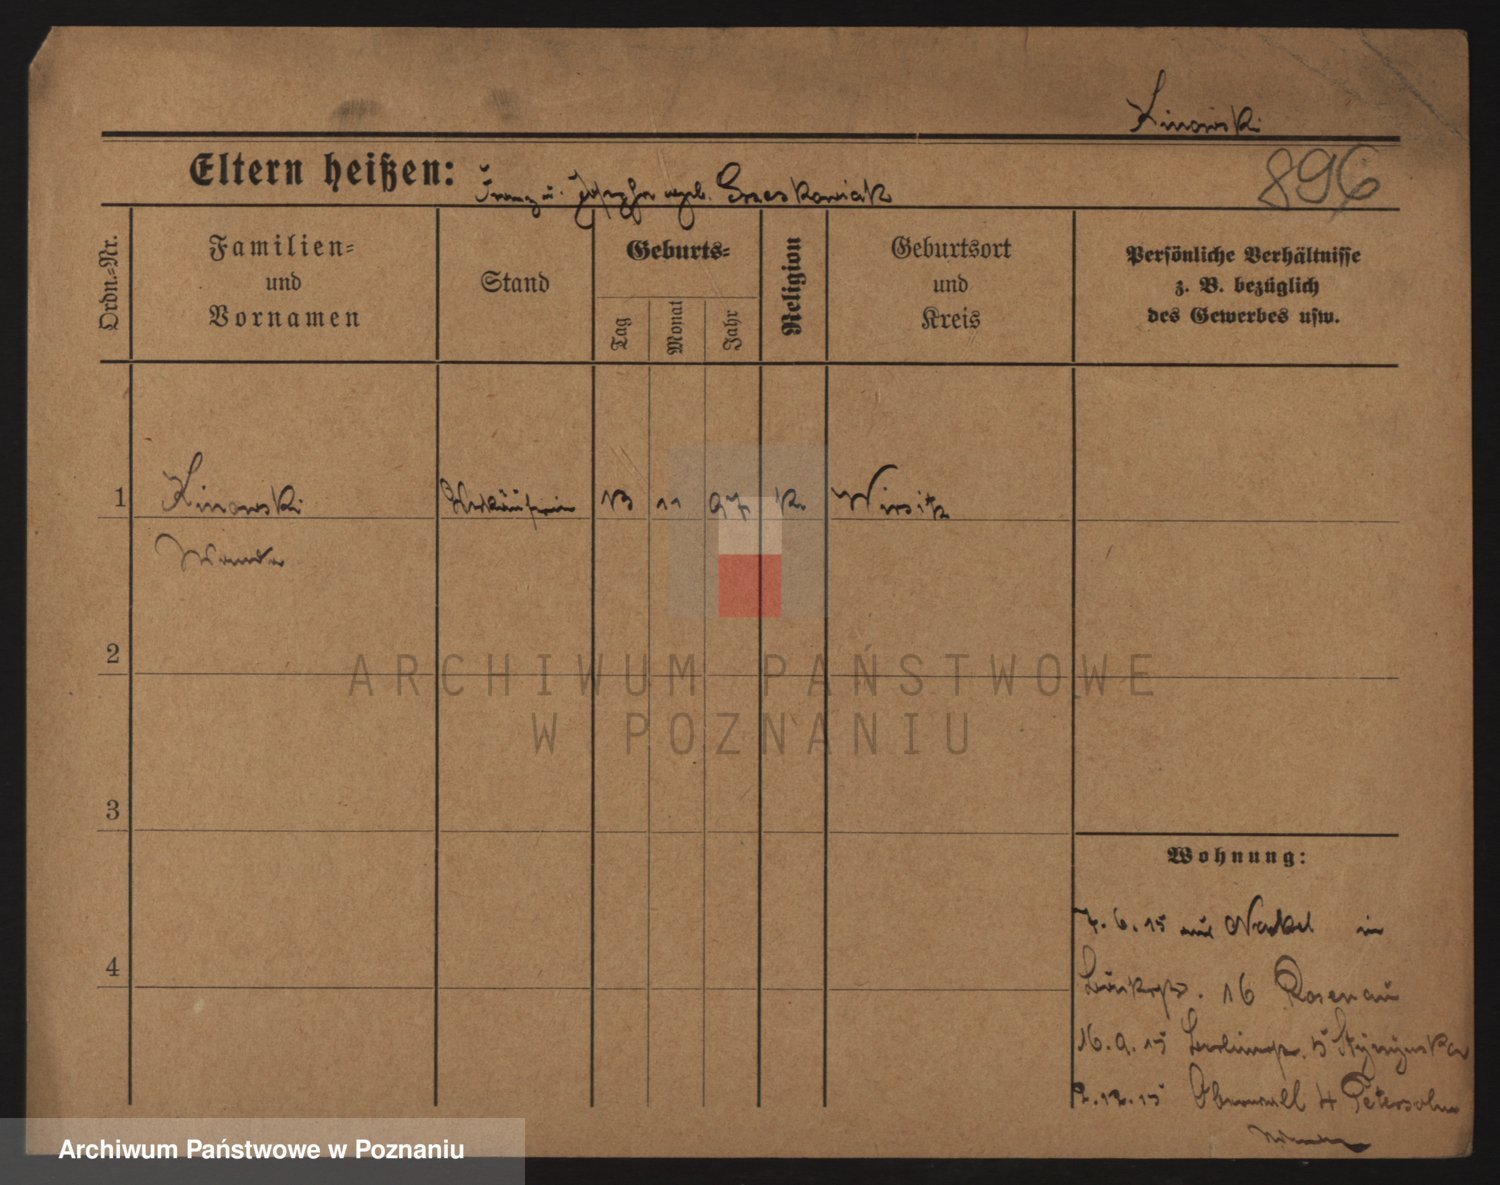 Kinowski
Eltern heißen: Franz u. Josepha geb.
896
Ordn.=Nr.
Familien=
und
Vornamen
Stand
Geburts=
Tag
Monat
Jahr
Religion
Geburtsort
und
Kreis
Persönliche Verhältnisse
z. B. bezüglich
des Gewerbes usw.
1 Kinowski Verkäuferin 13 11 97 k. Wirsitz
Wanda
2
ARCHIWUM PAŃSTWOWE
W POZNANIU
3
Wohnung:
7. 6. 15 aus Nakel in
4
16 Rosenau
16. 9. 15 5
2. 12. 15 Oberwall 4
Archiwum Państwowe w Poznaniu